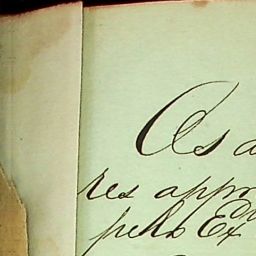 As a
res appro
pelo Ex